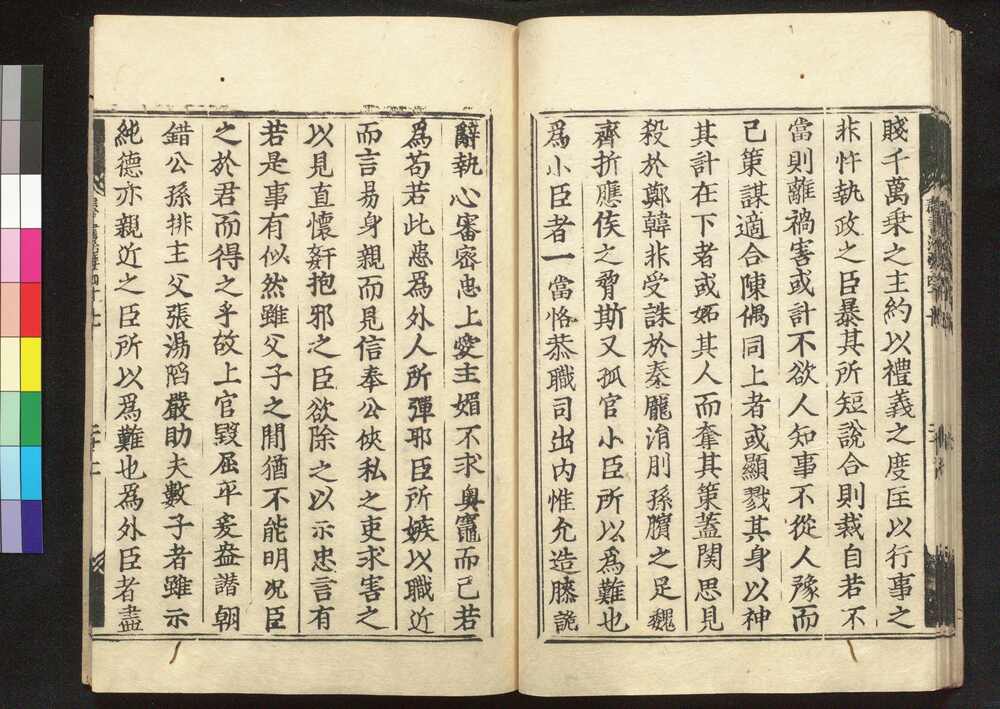 賤千萬乘之主約以禮義之度匡以行事之
非忤執政之臣暴其所短說合則裁自若不
當則離禍害或計不欲人知事不從人豫而
己策謀適合陳偶同上者或顯戮其身以神
其計在下者或妬其人而奪其策蓋関思見
殺於鄭韓非受誅於秦龐涓刖孫臏之足魏
齊折應侯之脅斯又孤官小臣所以爲難也
爲小臣者一當恪恭職司出內惟允造膝詭
辭執心審密忠上愛主媚不求奧竈而已若
爲苟若此患爲外人所彈邪臣所嫉以職近
而言易身親而見信奉公俠私之吏求害之
以見直懷姧抱邪之臣欲除之以示忠言有
若是事有似然雖父子之閒猶不能明况臣
之於君而得之乎故上官毀屈平爰盎譖朝
錯公孫排主父張湯陷嚴助夫數子者雖示
純德亦親近之臣所以爲難也爲外臣者盡